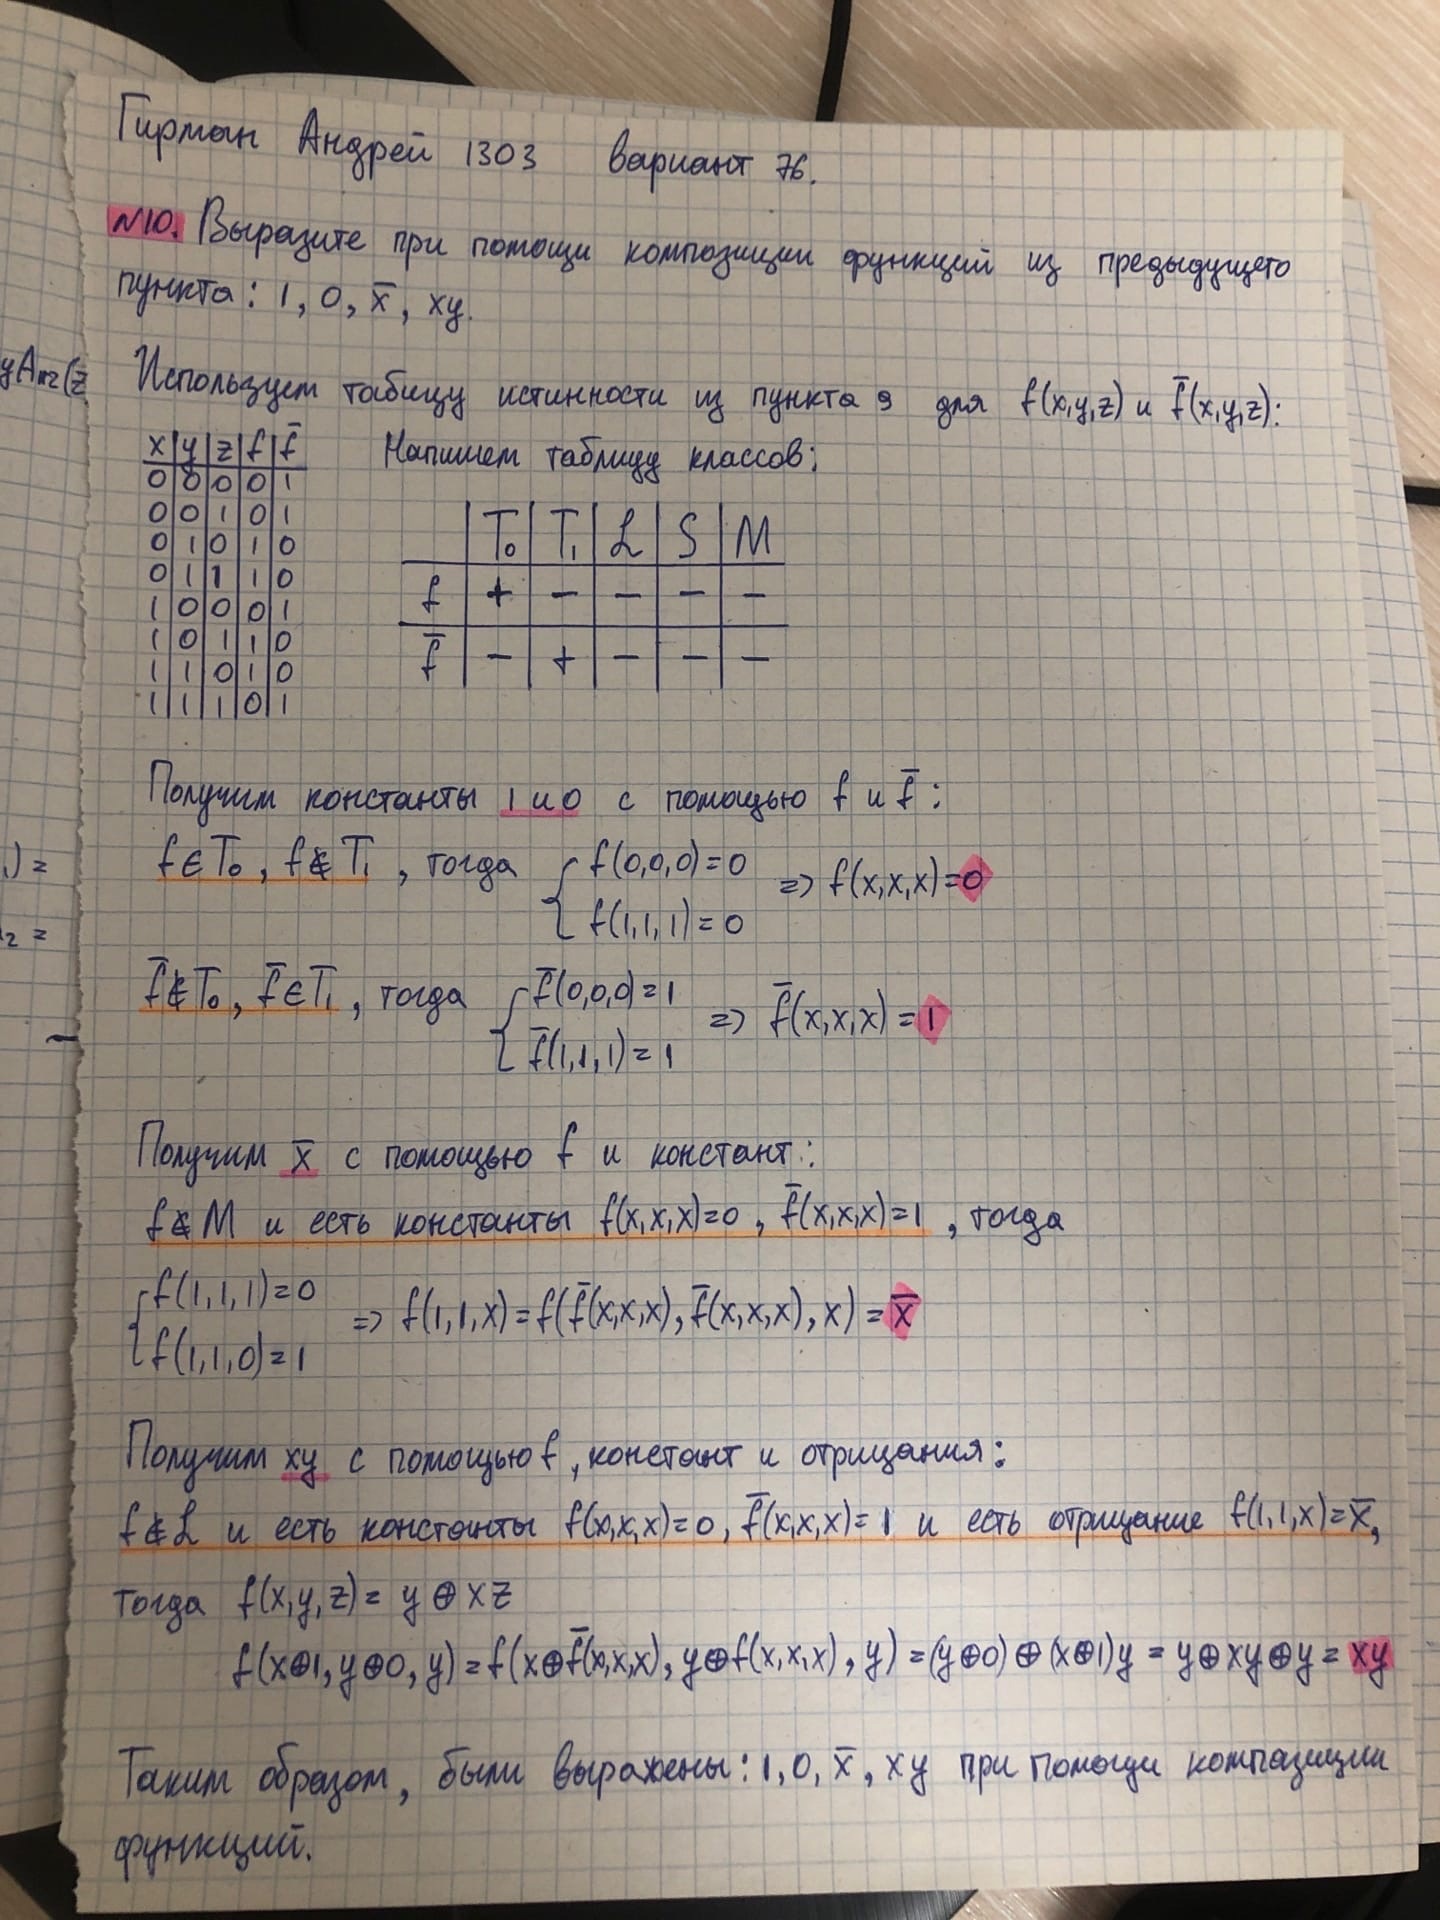 Гирман Андрей 1303 вариант 76.
№10. Выразите при помощи композиции функций из предыдущего
пункта: 1, 0, x̅, xy.
Используем табицу истинности из пункта 9 для f(x,y,z) и f̅(x,y,z):
Напишем таблицу классов:
x|y|z|f|f̅
0|0|0|0|1
0|0|1|0|1
0|1|0|1|0
0|1|1|1|0
1|0|0|0|1
1|0|1|1|0
1|1|0|1|0
1|1|1|0|1
|T₀|T₁|L|S|M
f|+|−|−|−|−
f̅|−|+|−|−|−
Получим константы 1 и 0 с помощью f и f̅:
f∈T₀, f∉T₁, тогда { f(0,0,0)=0
f(1,1,1)=0 => f(x,x,x)=0
f̅∉T₀, f̅∈T₁, тогда { f̅(0,0,0)=1
f̅(1,1,1)=1 => f̅(x,x,x)=1
Получим x̅ с помощью f и констант:
f∉M и есть константы f(x,x,x)=0, f̅(x,x,x)=1, тогда
{ f(1,1,1)=0
f(1,1,0)=1 => f(1,1,x)=f(f̅(x,x,x),f̅(x,x,x),x)=x̅
Получим xy с помощью f, констант и отрицания:
f∉L и есть константы f(x,x,x)=0, f̅(x,x,x)=1 и есть отрицание f(1,1,x)=x̅,
тогда f(x,y,z)= y⊕xz
f(x⊕1, y⊕0, y)=f(x⊕f̅(x,x,x), y⊕f(x,x,x), y)=(y⊕0)⊕(x⊕1)y = y⊕xy⊕y = xy
Таким образом, были выражены: 1, 0, x̅, xy при помощи компазиции
функций.
yA₁₂(z
₁) =
₂ =